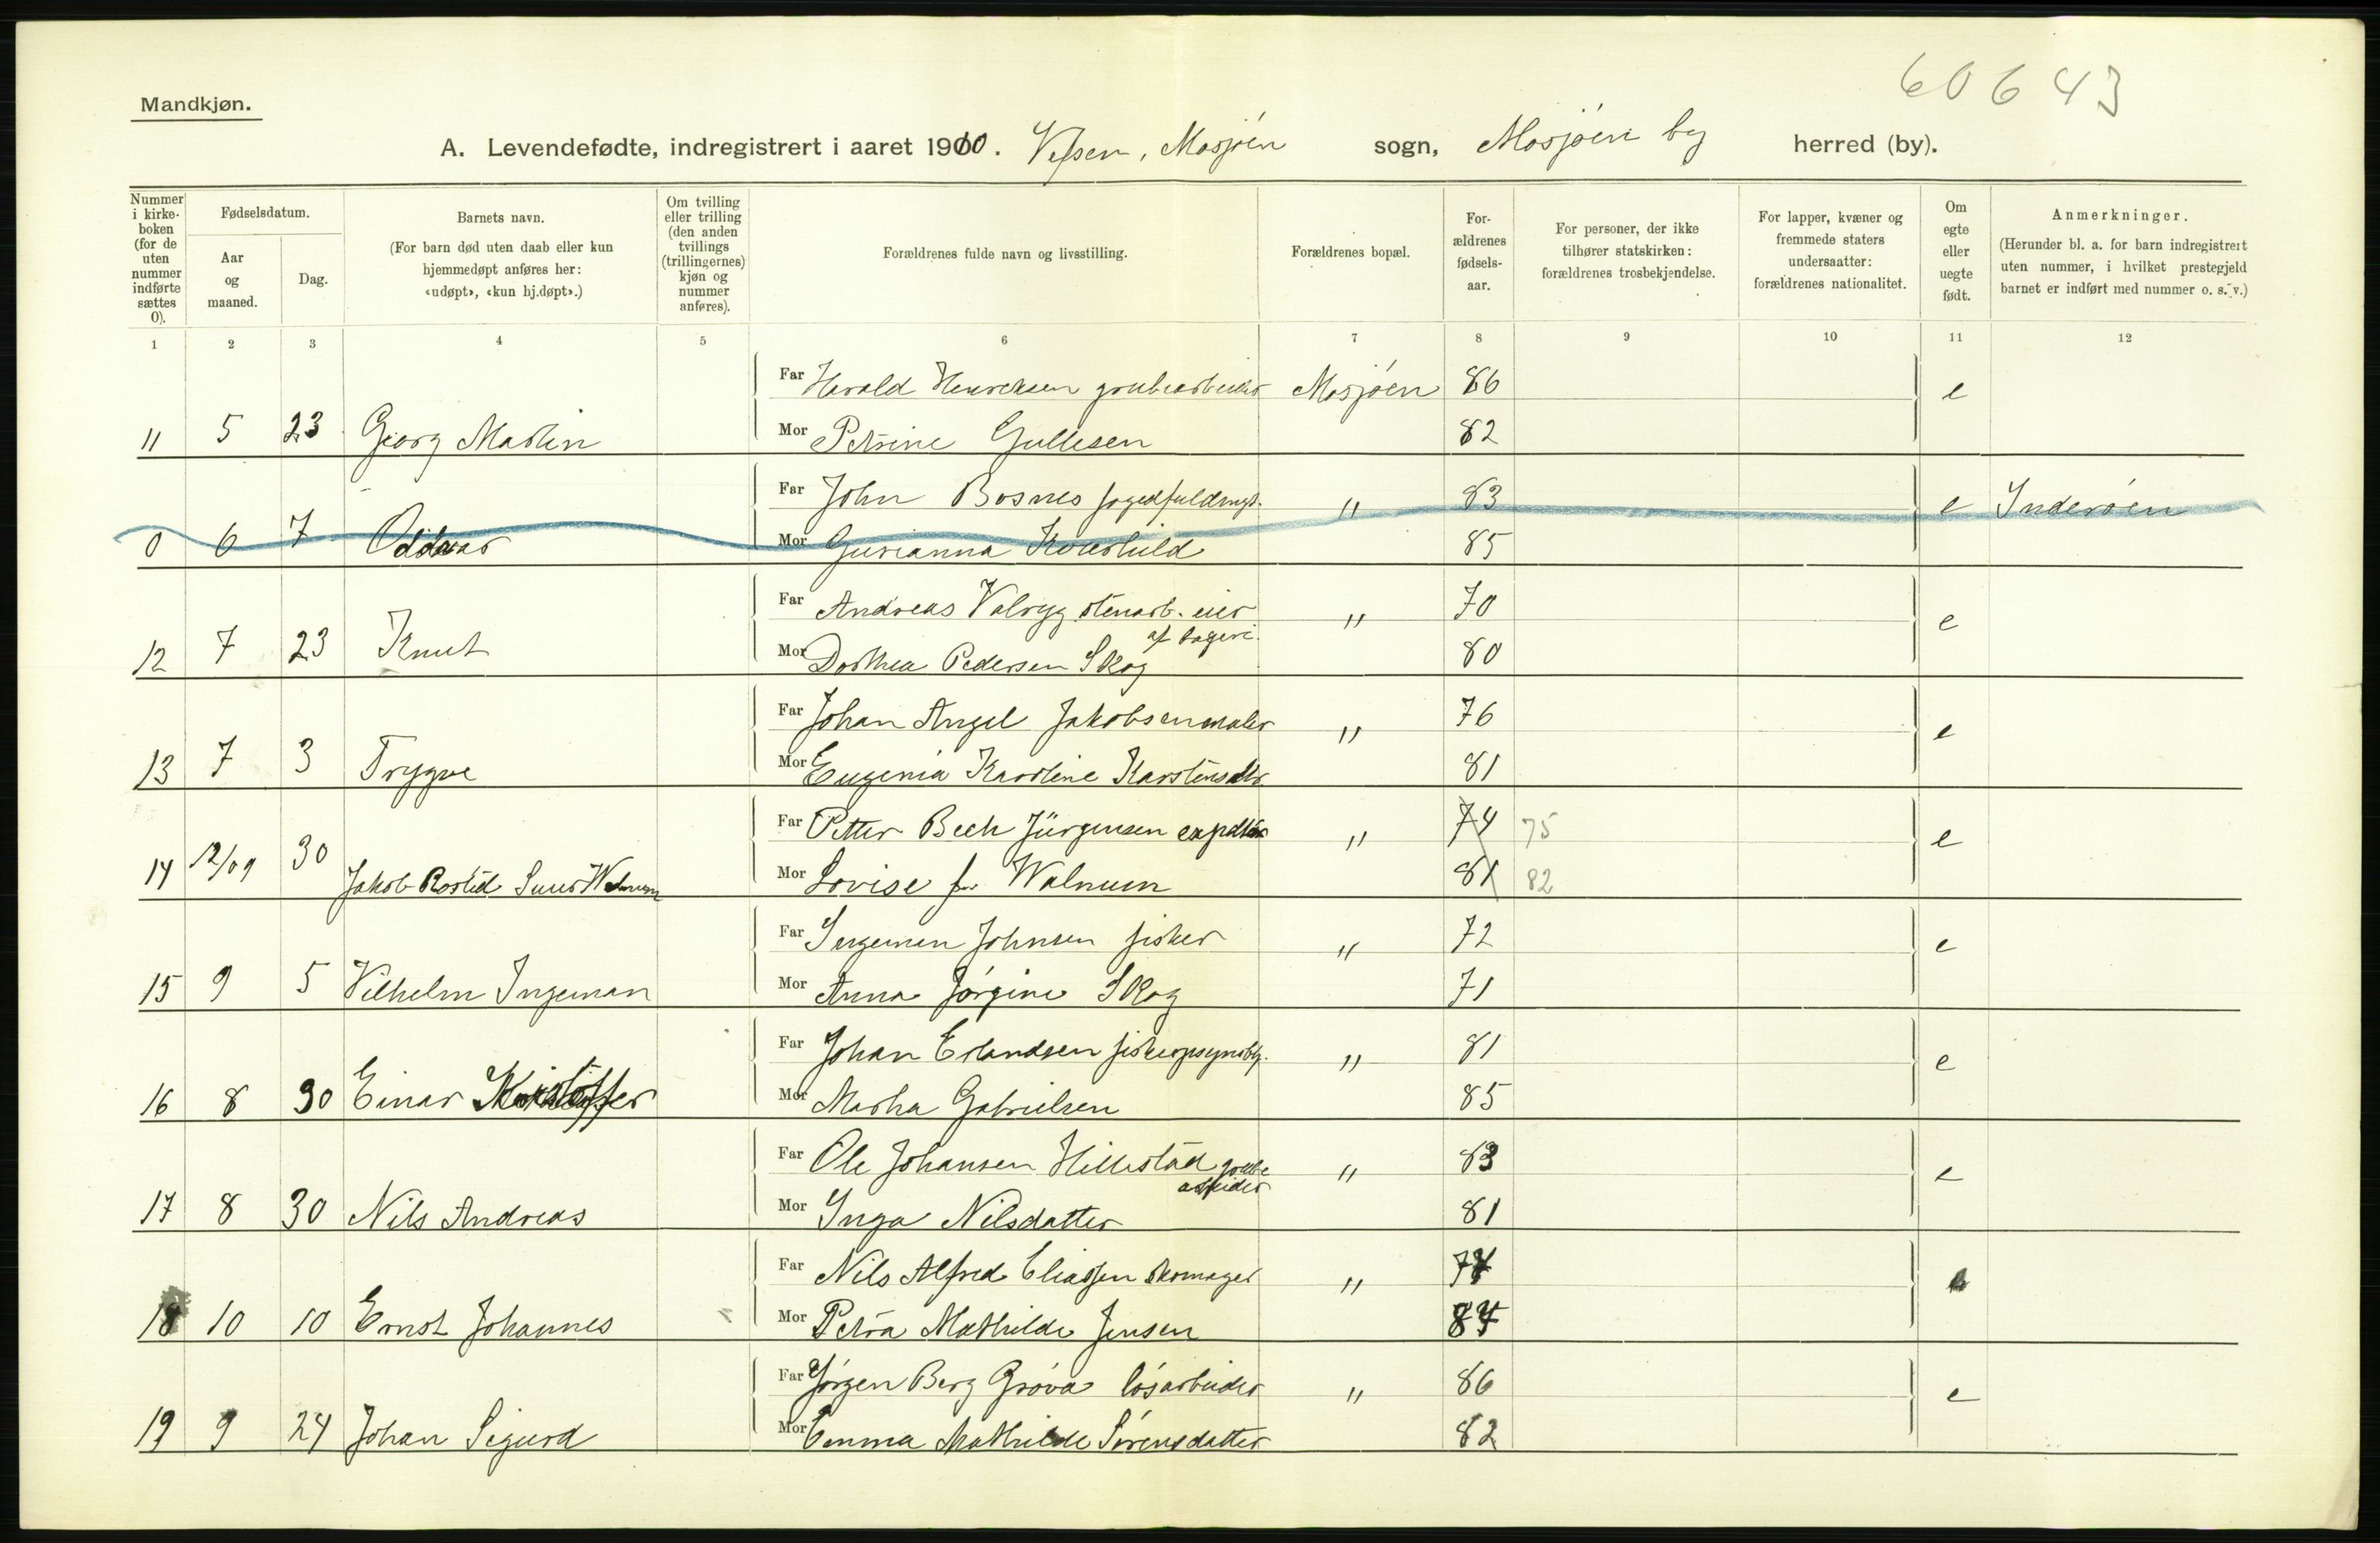 60643
Mandkjøn.
A. Levendefødte, indregistrert i aaret 1910. Vefsen, Mosjøen sogn, Mosjøen by herred (by).
Nummer i kirke-boken (for de uten nummer indførte sættes 0).
Fødselsdatum.
Aar og maaned.
Dag.
Barnets navn.
(For barn død uten daab eller kun hjemmedøpt anføres her: «udøpt», «kun hj.døpt».)
Om tvilling eller trilling (den anden tvillings (trillingernes) kjøn og nummer anføres).
Forældrenes fulde navn og livsstilling.
Forældrenes bopæl.
For-ældrenes fødsels-aar.
For personer, der ikke tilhører statskirken: forældrenes trosbekjendelse.
For lapper, kvæner og fremmede staters undersaatter: forældrenes nationalitet.
Om egte eller uegte født.
Anmerkninger.
(Herunder bl. a. for barn indregistrert uten nummer, i hvilket prestegjeld barnet er indført med nummer o. s. v.)
1 2 3 4 5 6 7 8 9 10 11 12
Far Harald Henreksen grubearbeider Mosjøen 86 e
11 5 23 Georg Martin Mor Petrine Gullesen 82
Far John Bosnes fogedfuldmgt. " 83 e Inderøen
0 6 7 Oddvar Mor Gurianna 85
Far Andreas Valryg stenarb. eier " 70 e
af bageri.
12 7 23 Knut Mor Dorthea Pedersen Skog 80
Far Johan Angel Jakobsen maler " 76 e
13 7 3 Trygve Mor Eugenia Karoline Karstensdtr 81
Far Petter Bech Jürgensen expditør " 74 75 e
14 12/09 30 Jakob Rosted Mor Lovise f. Walnum 81 82
Far Ingeman Johnsen fisker " 72 e
15 9 5 Vilhelm Ingeman Mor Anna Jørgine Skog 71
Far Johan Erlandsen fiskeopsynsbtj. " 81 e
16 8 30 Einar Kristoffer Mor Martha Gabrielsen 85
Far Ole Johansen Hillestad grube " 83 e
arbeider
17 8 30 Nils Andreas Mor Inga Nilsdatter 81
Far Nils Alfred Eliassen skomager "
18 10 10 Ernst Johannes Mor Petra Mathilde Jensen
Far Jørgen Berg Grøva løsarbeider " 86 e
19 9 24 Johan Sigurd Mor Emma Mathilde Sørensdatter 82